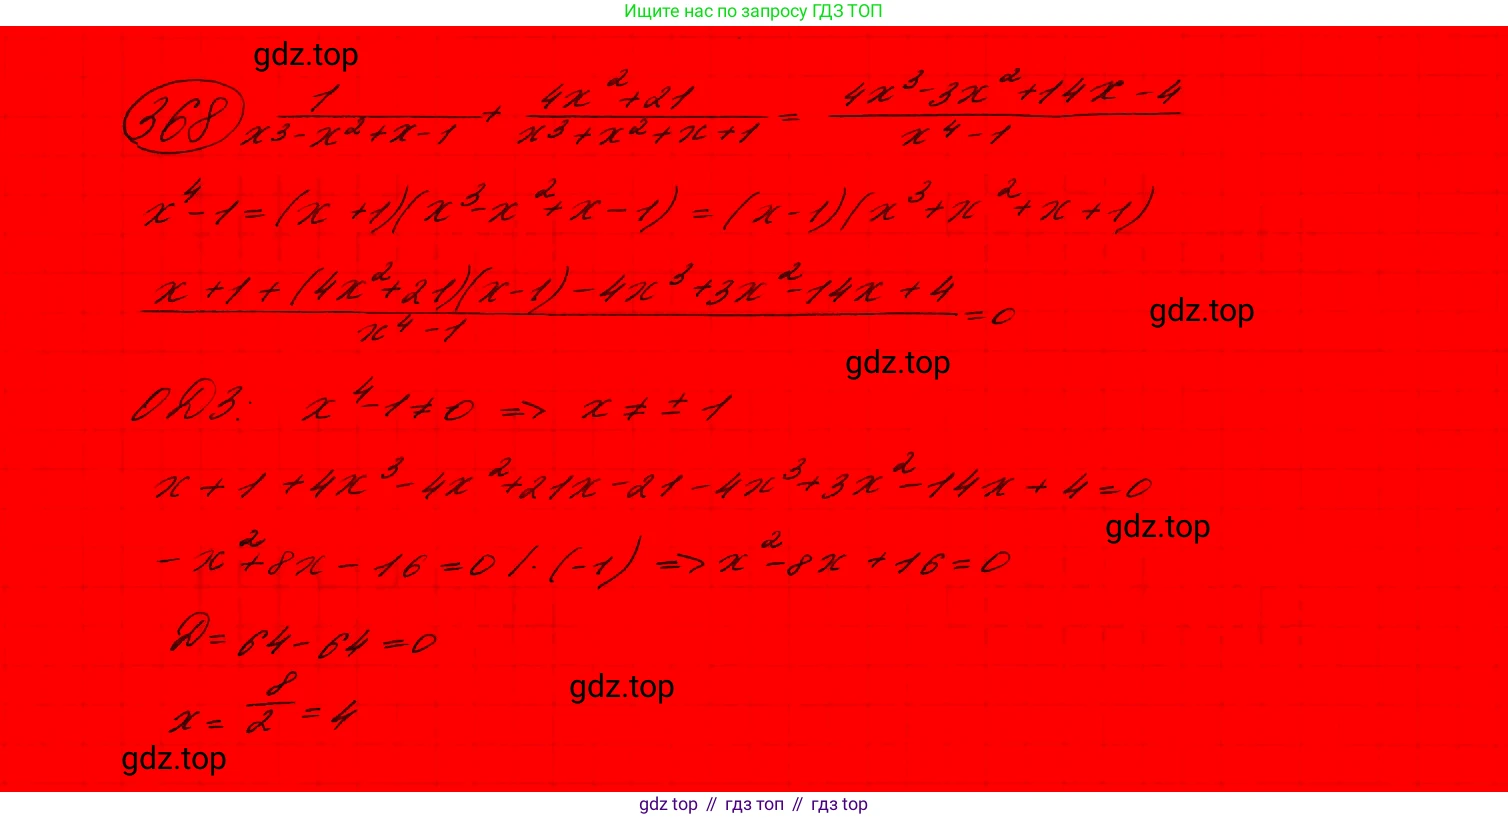 Ищите нас по запросу ГДЗ ТОП
gdz.top
368 1/(x³-x²+x-1) + (4x²+21)/(x³+x²+x+1) = (4x³-3x²+14x-4)/(x⁴-1)
x⁴-1=(x+1)(x³-x²+x-1)=(x-1)(x³+x²+x+1)
(x+1+(4x²+21)(x-1)-4x³+3x²-14x+4)/(x⁴-1)=0
gdz.top
gdz.top
ОДЗ: x⁴-1≠0 => x≠±1
x+1+4x³-4x²+21x-21-4x³+3x²-14x+4=0
gdz.top
-x²+8x-16=0 /·(-1) => x²-8x+16=0
D=64-64=0
gdz.top
x=8/2=4
gdz.top
gdz top // гдз топ // гдз top